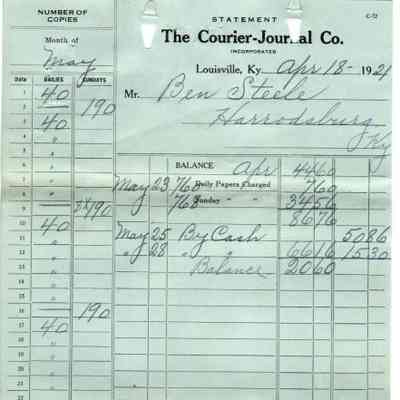 NUMBER OF COPIES
Month of May
Date DAILIES SUNDAYS
1 40
2 — 190
3 40
4 "
5 "
6 "
7 "
8 "
9 — 190
10 40
11 "
12 "
13 "
14 "
15 "
16 — 190
17 40
18 "
19 "
20 "
21 "
22
STATEMENT
C-72
The Courier-Journal Co.
INCORPORATED
Louisville, Ky. Apr 18- 1921
Mr. Ben Steele
Harrodsburg
Ky
BALANCE Apr 44 60
May 23 760 Daily Papers Charged 7 60
768 Sunday " " 34 56
86 76
May 25 By Cash 50 86
" 28 " " 66 16 15 30
Balance 20 60